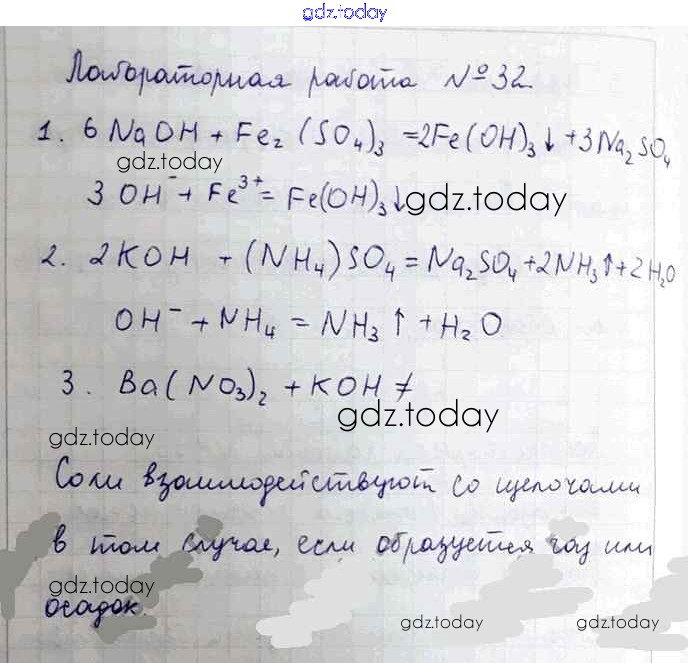 gdz.today
Лабораторная работа №32
1. 6 NaOH + Fe₂ (SO₄)₃ =2Fe(OH)₃↓ +3Na₂SO₄
gdz.today
3 OH⁻ + Fe³⁺ = Fe(OH)₃↓ gdz.today
2. 2KOH + (NH₄)SO₄ = Na₂SO₄+2NH₃↑+2H₂O
OH⁻ + NH₄ = NH₃↑ + H₂O
3. Ba(NO₃)₂ + KOH ≠
gdz.today
gdz.today
Соли взаимодействуют со щелочами
в том случае, если образуется газ или
gdz.today
осадок.
gdz.today gdz.today